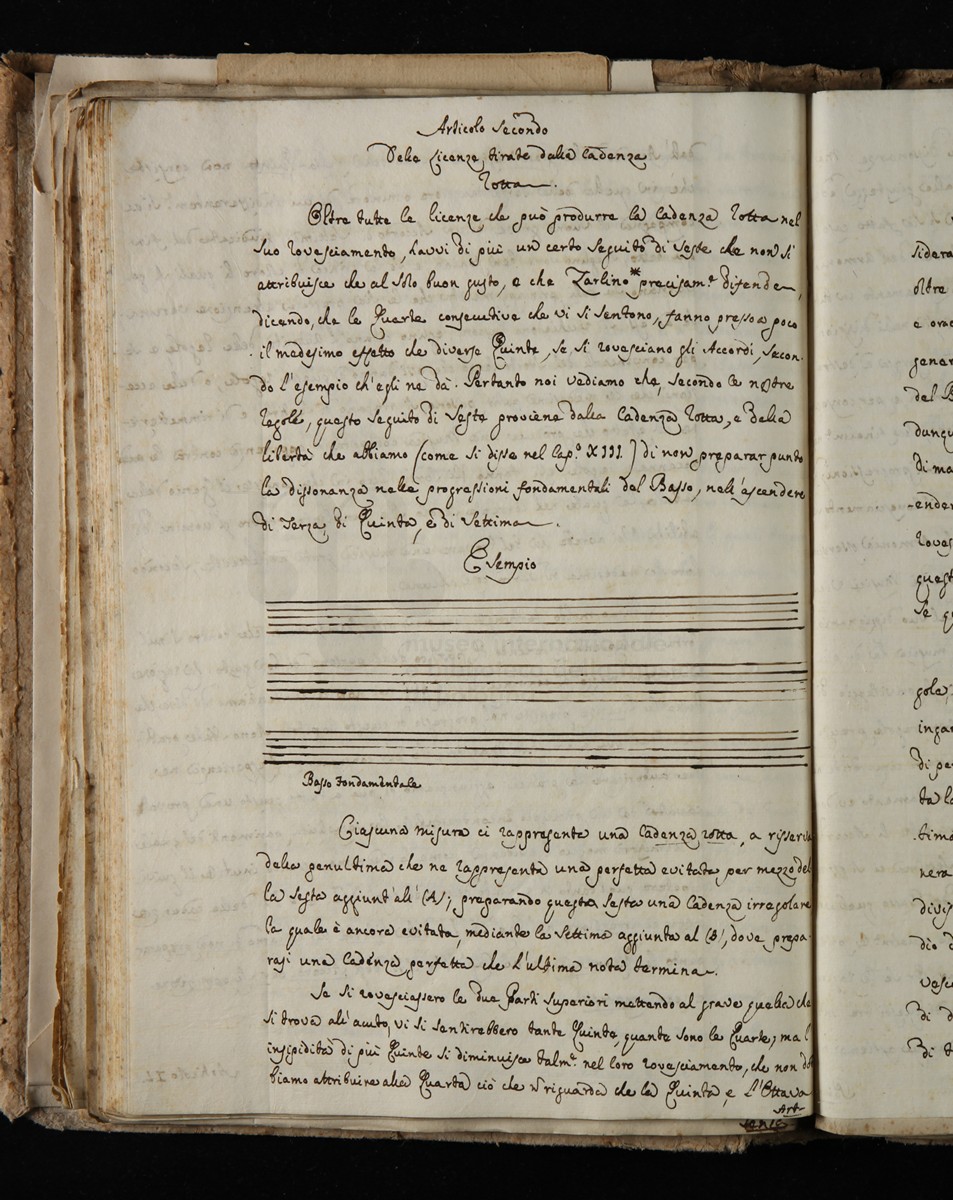 Articolo Secondo
Delle Licenze, tirate dalla Cadenza
Rotta.
Oltre tutte le licenze che può produrre la Cadenza Rotta nel
suo rovesciamento, havvi di più un certo seguito di Seste che non si
attribuisce che al solo buon gusto, e che Zarlino* precisam.e difende,
dicendo, che le Quarte consecutive che vi si sentono, fanno presso a poco
il medesimo effetto che diverse Quinte, se si rovesciano gli Accordi, secon-
do l'esempio ch'egli ne dà. Pertanto noi vediamo che, secondo le nostre
regole, questo seguito di Seste proviene dalla Cadenza Rotta, e dalla
libertà che abbiamo (come si disse nel Cap.o XIII.) di non preparar punto
la dissonanza nelle progressioni fondamentali del Basso, nell'ascendere
di Terza, di Quinta, e di Settima.
Esempio
Basso Fondamentale
Ciascuna misura ci rappresenta una Cadenza rotta, a riserva
della penultima che ne rappresenta una perfetta evitata per mezzo del
la Sesta aggiunt'all' (A); preparando questa Sesta una Cadenza irregolare
la quale è ancora evitata, mediante la Settima aggiunta al (B), dove prepa-
rasi una Cadenza perfetta che l'ultima nota termina.
Se si rovesciassero le due Parti superiori mettendo al grave quella che
si trova all'acuto, vi si sentirebbero tante Quinte, quante sono le Quarte; ma l'
insipidità di più Quinte si diminuisce talm.e nel loro rovesciamento, che non dob
biamo attribuire alla Quarta ciò che riguarda che la Quinta e l'Ottava
Art-
sidera
oltre
e orac
gener
del B
dunqu
di ma
-ender
roves
quest
Se q
gola,
inga
di pe
ta l
tima
nera
divis
dio
vesc
di d
di t